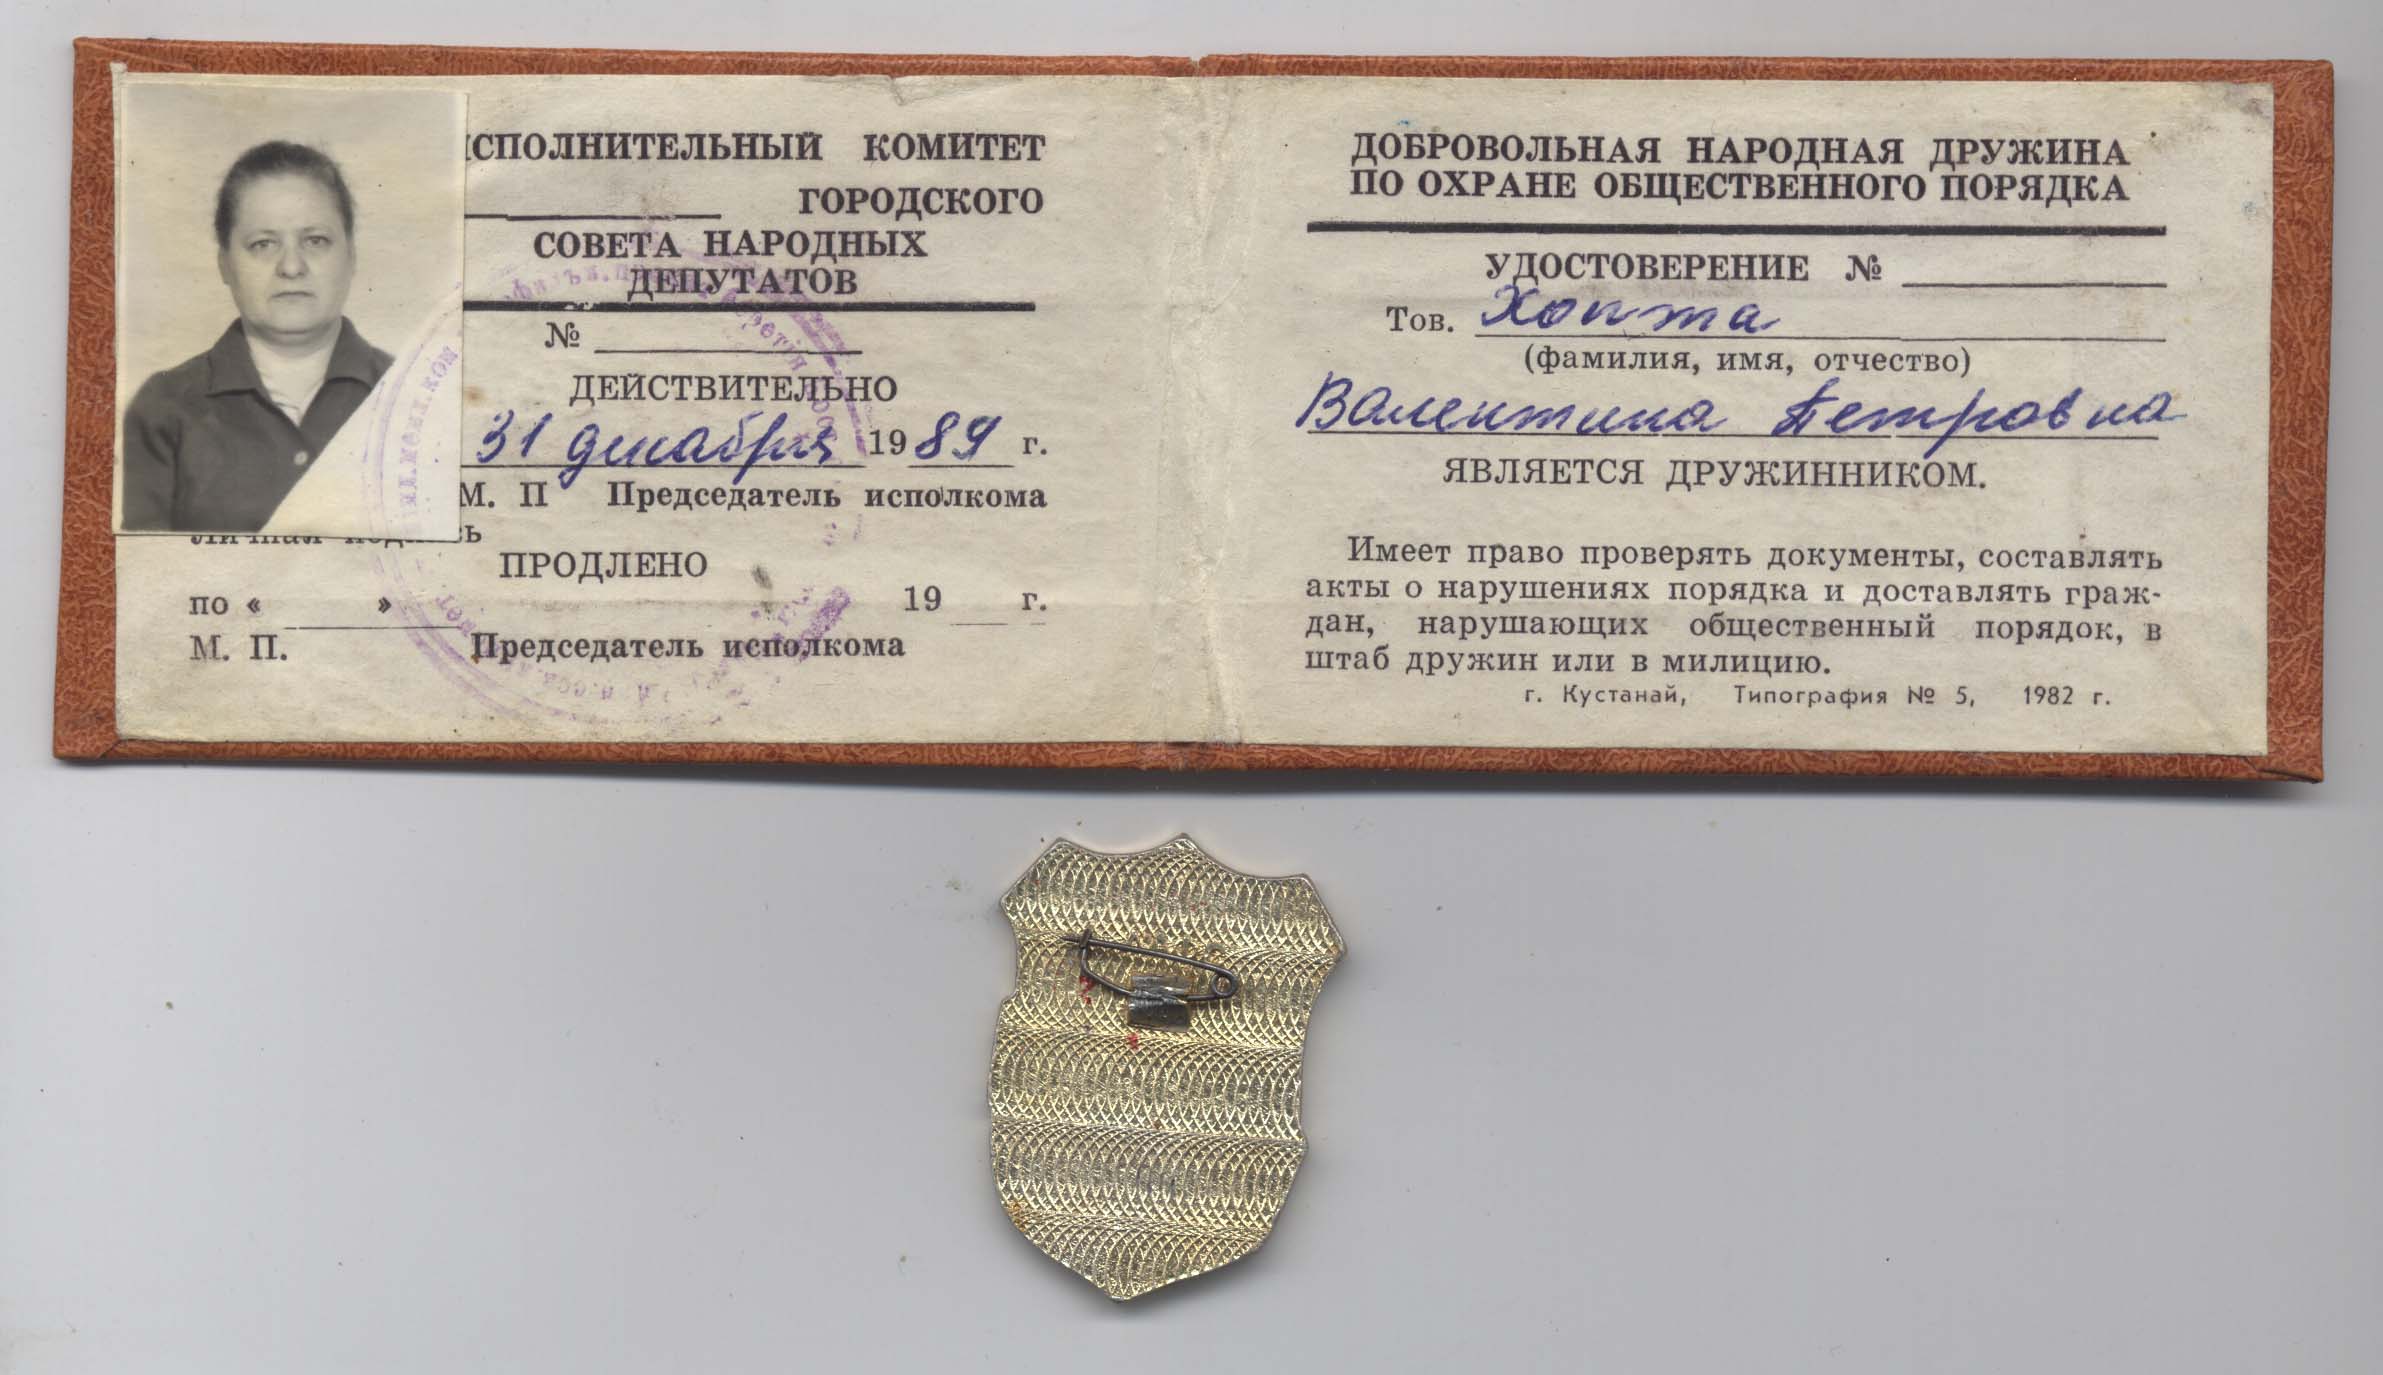 ИСПОЛНИТЕЛЬНЫЙ КОМИТЕТ
ГОРОДСКОГО
СОВЕТА НАРОДНЫХ
ДЕПУТАТОВ
№
ДЕЙСТВИТЕЛЬНО
31 декабря 1989 г.
М. П Председатель исполкома
Личная подпись
ПРОДЛЕНО
по « » 19 г.
М. П. Председатель исполкома
ДОБРОВОЛЬНАЯ НАРОДНАЯ ДРУЖИНА
ПО ОХРАНЕ ОБЩЕСТВЕННОГО ПОРЯДКА
УДОСТОВЕРЕНИЕ №
Тов. Хопта
(фамилия, имя, отчество)
Валентина Петровна
ЯВЛЯЕТСЯ ДРУЖИННИКОМ.
Имеет право проверять документы, составлять
акты о нарушениях порядка и доставлять граж-
дан, нарушающих общественный порядок, в
штаб дружин или в милицию.
г. Кустанай, Типография № 5, 1982 г.